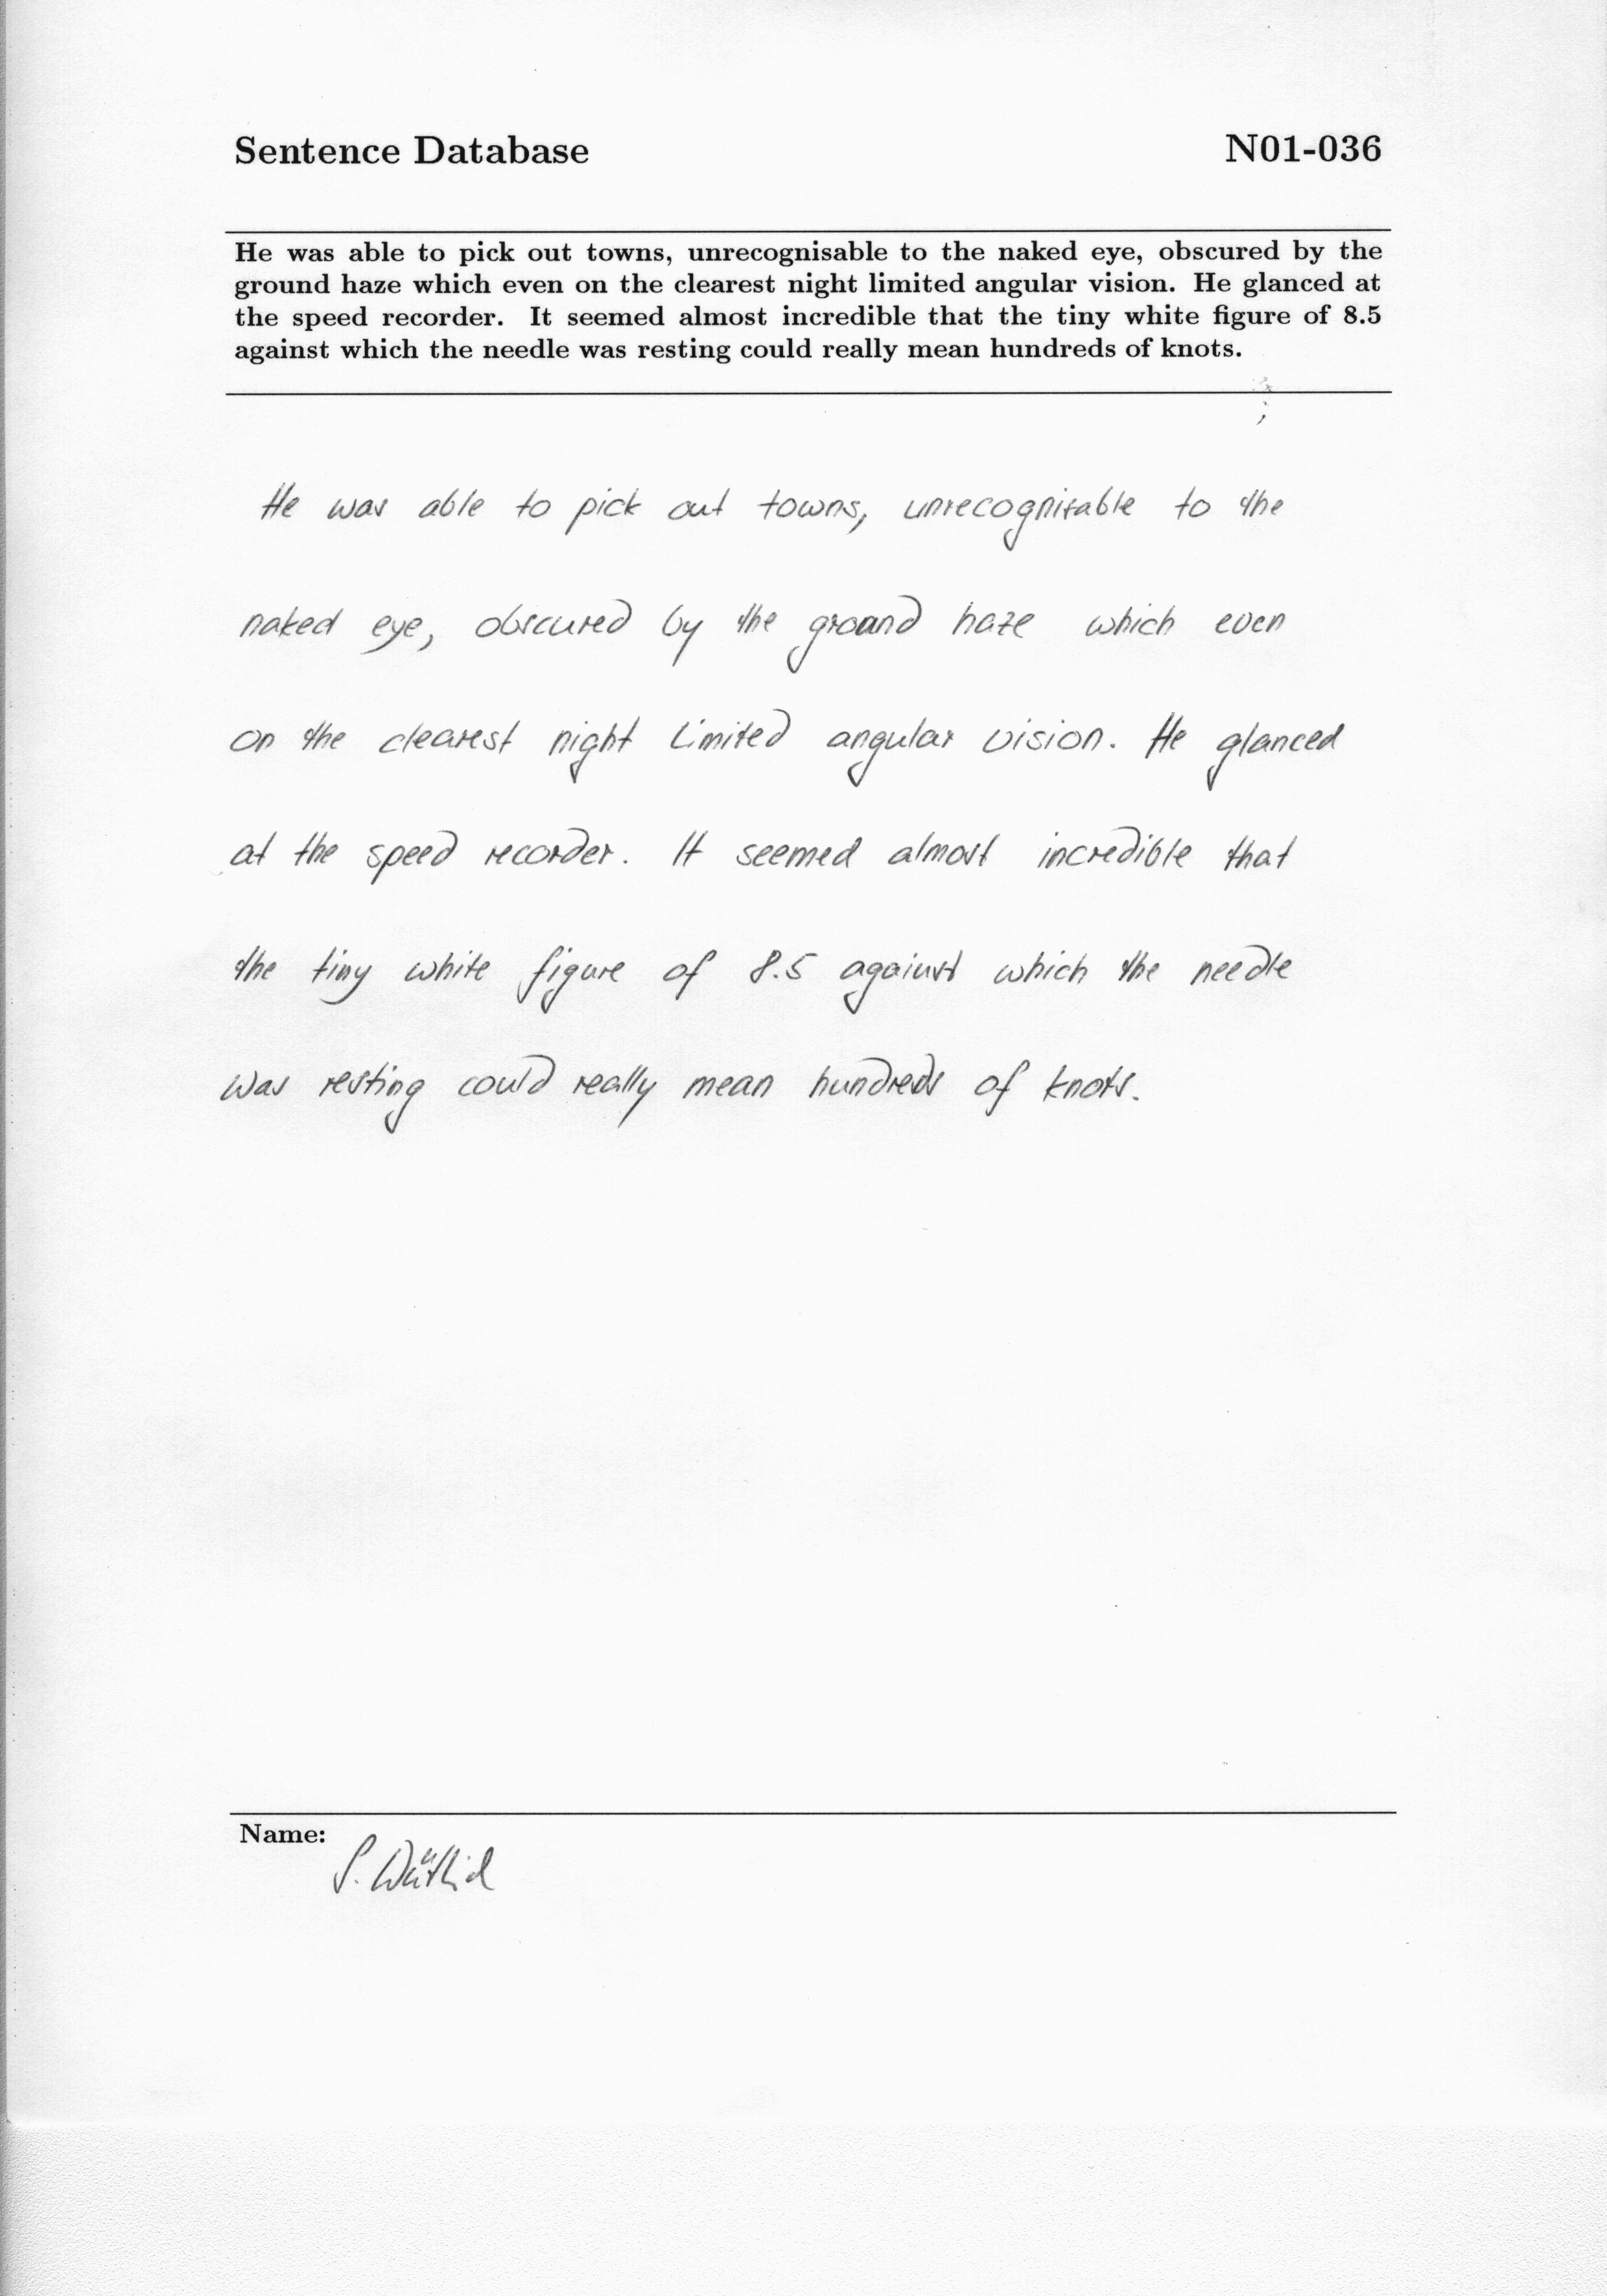 Sentence Database N01-036
He was able to pick out towns, unrecognisable to the naked eye, obscured by the
ground haze which even on the clearest night limited angular vision. He glanced at
the speed recorder. It seemed almost incredible that the tiny white figure of 8.5
against which the needle was resting could really mean hundreds of knots.
He was able to pick out towns, unrecognisable to the
naked eye, obscured by the ground haze which even
on the clearest night limited angular vision. He glanced
at the speed recorder. It seemed almost incredible that
the tiny white figure of 8.5 against which the needle
was resting could really mean hundreds of knots.
Name:
S.